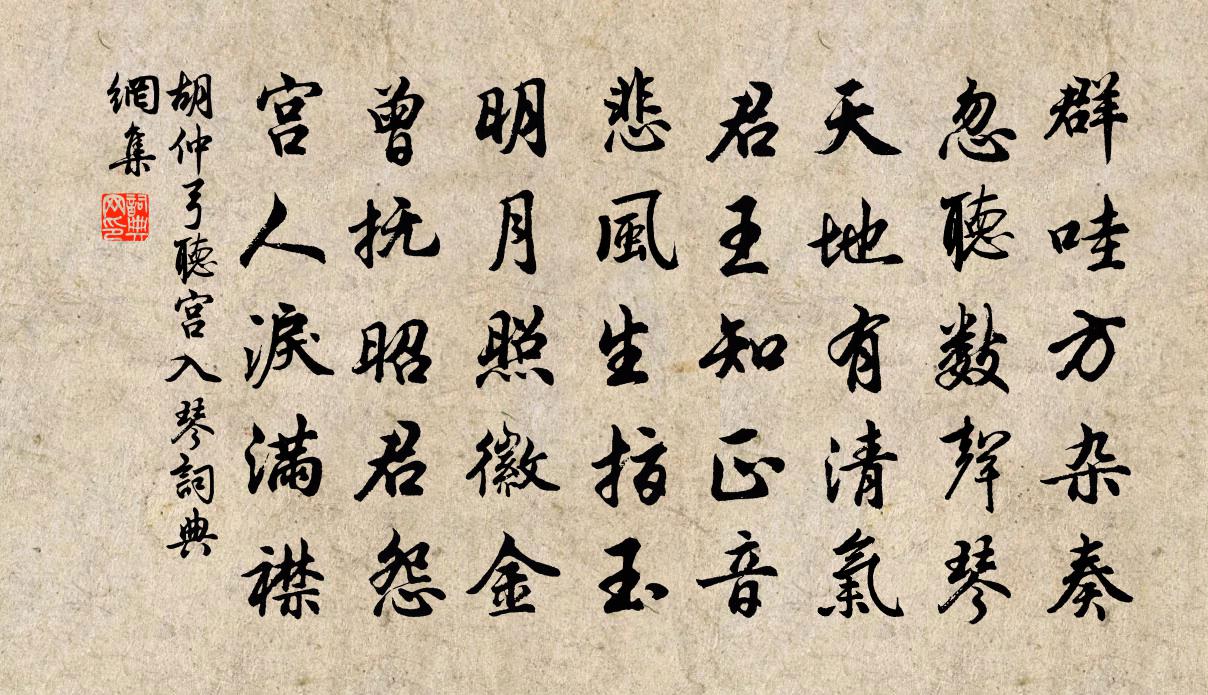 群哇方杂奏
忽聽数聲琴
天地有清氣
君王知正音
悲風生指玉
明月照徽金
曾抚昭君怨
宫人淚满襟
胡仲弓聽宫入琴詞典
網集
詞典网印